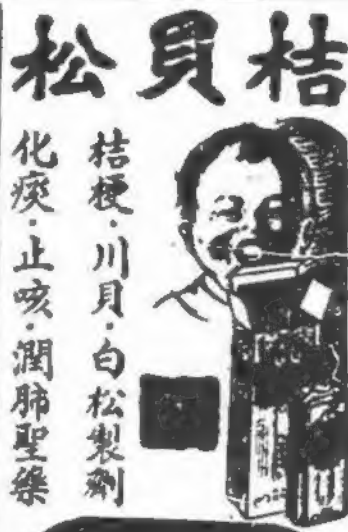 桔貝松
桔梗·川貝·白松製劑
化痰·止咳·潤肺聖藥